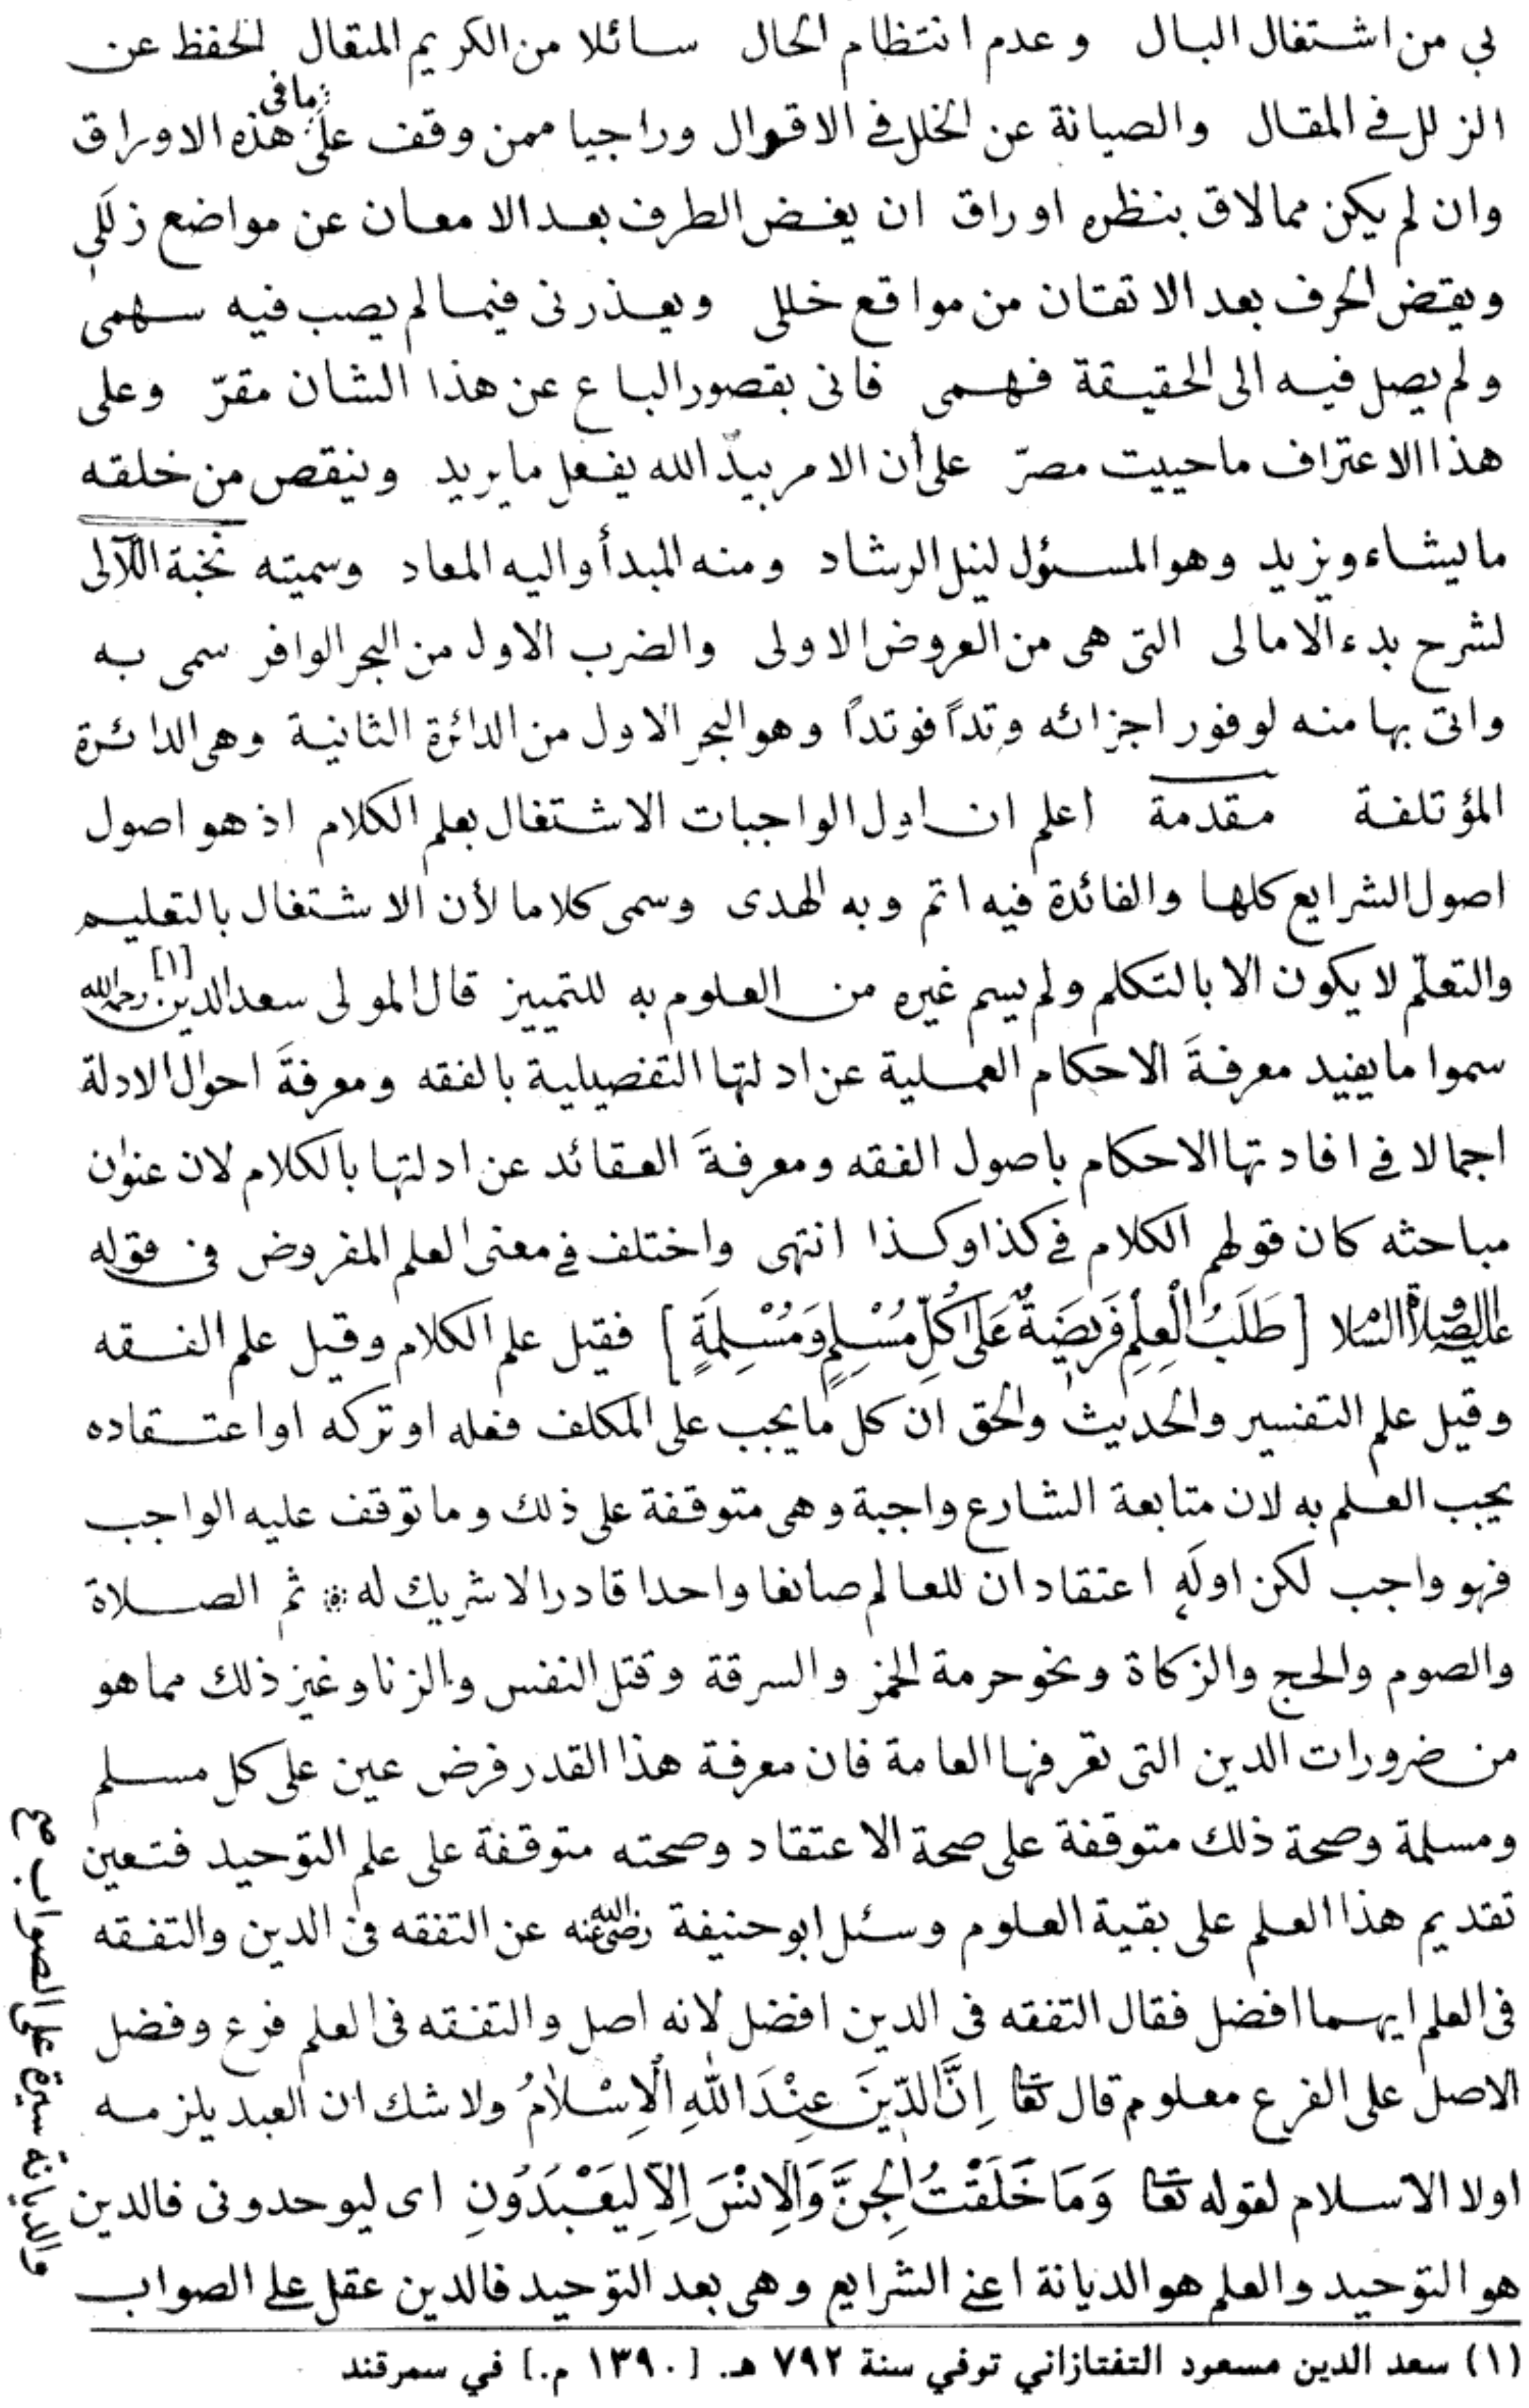 بي من اشتغال البال وعدم انتظام الحال سائلا من الكريم المتعال الحفظ عن
الزلل في المقال والصيانة عن الخلل في الاقوال وراجيا ممن وقف على ما في هذه الاوراق
وان لم يكن مما لاق بنظره او راق ان يغض الطرف بعد الامعان عن مواضع زللى
ويقض الحرف بعد الاتقان من مواقع خللى ويعذرنى فيما لم يصب فيه سهمى
ولم يصل فيه الى الحقيقة فهمى فانى بقصور الباع عن هذا الشان مقرّ وعلى
هذا الاعتراف ما حييت مصرّ على أن الامر بيد الله يفعل ما يريد وينقص من خلقه
ما يشاء ويزيد وهو المسئول لنيل الرشاد ومنه المبدأ واليه المعاد وسميته نخبة اللآلى
لشرح بدء الامالى التى هى من العروض الاولى والضرب الاول من البحر الوافر سمى به
واتى بها منه لوفور اجزائه وتداً فوتداً وهو البحر الاول من الدائرة الثانية وهى الدائرة
المؤتلفة مقدمة اعلم ان اول الواجبات الاشتغال بعلم الكلام اذ هو اصول
اصول الشرايع كلها والفائدة فيه اتم وبه الهدى وسمى كلاما لأن الاشتغال بالتعليم
والتعلّم لا يكون الا بالتكلم ولم يسم غيره من العلوم به للتمييز قال المولى سعد الدين [١] رحمه الله
سموا ما يفيد معرفةَ الاحكام العملية عن ادلتها التفصيلية بالفقه ومعرفةَ احوال الادلة
اجمالا في افادتها الاحكام باصول الفقه ومعرفةَ العقائد عن ادلتها بالكلام لان عنوان
مباحثه كان قولهم الكلام في كذا وكذا انتهى واختلف في معنى العلم المفروض فى قوله
عليه الصلاة والسلام [طَلَبُ الْعِلْمِ فَرِيضَةٌ عَلَى كُلِّ مُسْلِمٍ وَمُسْلِمَةٍ] فقيل علم الكلام وقيل علم الفقه
وقيل علم التفسير والحديث والحق ان كل ما يجب على المكلف فعله او تركه او اعتقاده
يجب العلم به لان متابعة الشارع واجبة وهى متوقفة على ذلك وما توقف عليه الواجب
فهو واجب لكن اوله اعتقاد ان للعالم صانعا واحدا قادرا لا شريك له * ثم الصلاة
والصوم والحج والزكاة ونحو حرمة الخمر والسرقة وقتل النفس والزنا وغير ذلك مما هو
من ضرورات الدين التى تعرفها العامة فان معرفة هذا القدر فرض عين على كل مسلم
ومسلمة وصحة ذلك متوقفة على صحة الاعتقاد وصحته متوقفة على علم التوحيد فتعين
تقديم هذا العلم على بقية العلوم وسئل ابو حنيفة رضى الله عنه عن التفقه فى الدين والتفقه
فى العلم ايهما افضل فقال التفقه فى الدين افضل لانه اصل والتفقه فى العلم فرع وفضل
الاصل على الفرع معلوم قال تعا اِنَّ الدّينَ عِنْدَ اللهِ الْاِسْلاَمُ ولا شك ان العبد يلزمه
اولا الاسلام لقوله تعا وَمَا خَلَقْتُ الْجِنَّ وَالْاِنْسَ اِلاَّ لِيَعْبُدُونِ اى ليوحدونى فالدين
هو التوحيد والعلم هو الديانة اعنى الشرايع وهى بعد التوحيد فالدين عقل على الصواب
والديانة سيرة على الصواب صح
(١) سعد الدين مسعود التفتازاني توفي سنة ٧٩٢ هـ. [١٣٩٠ م.] في سمرقند